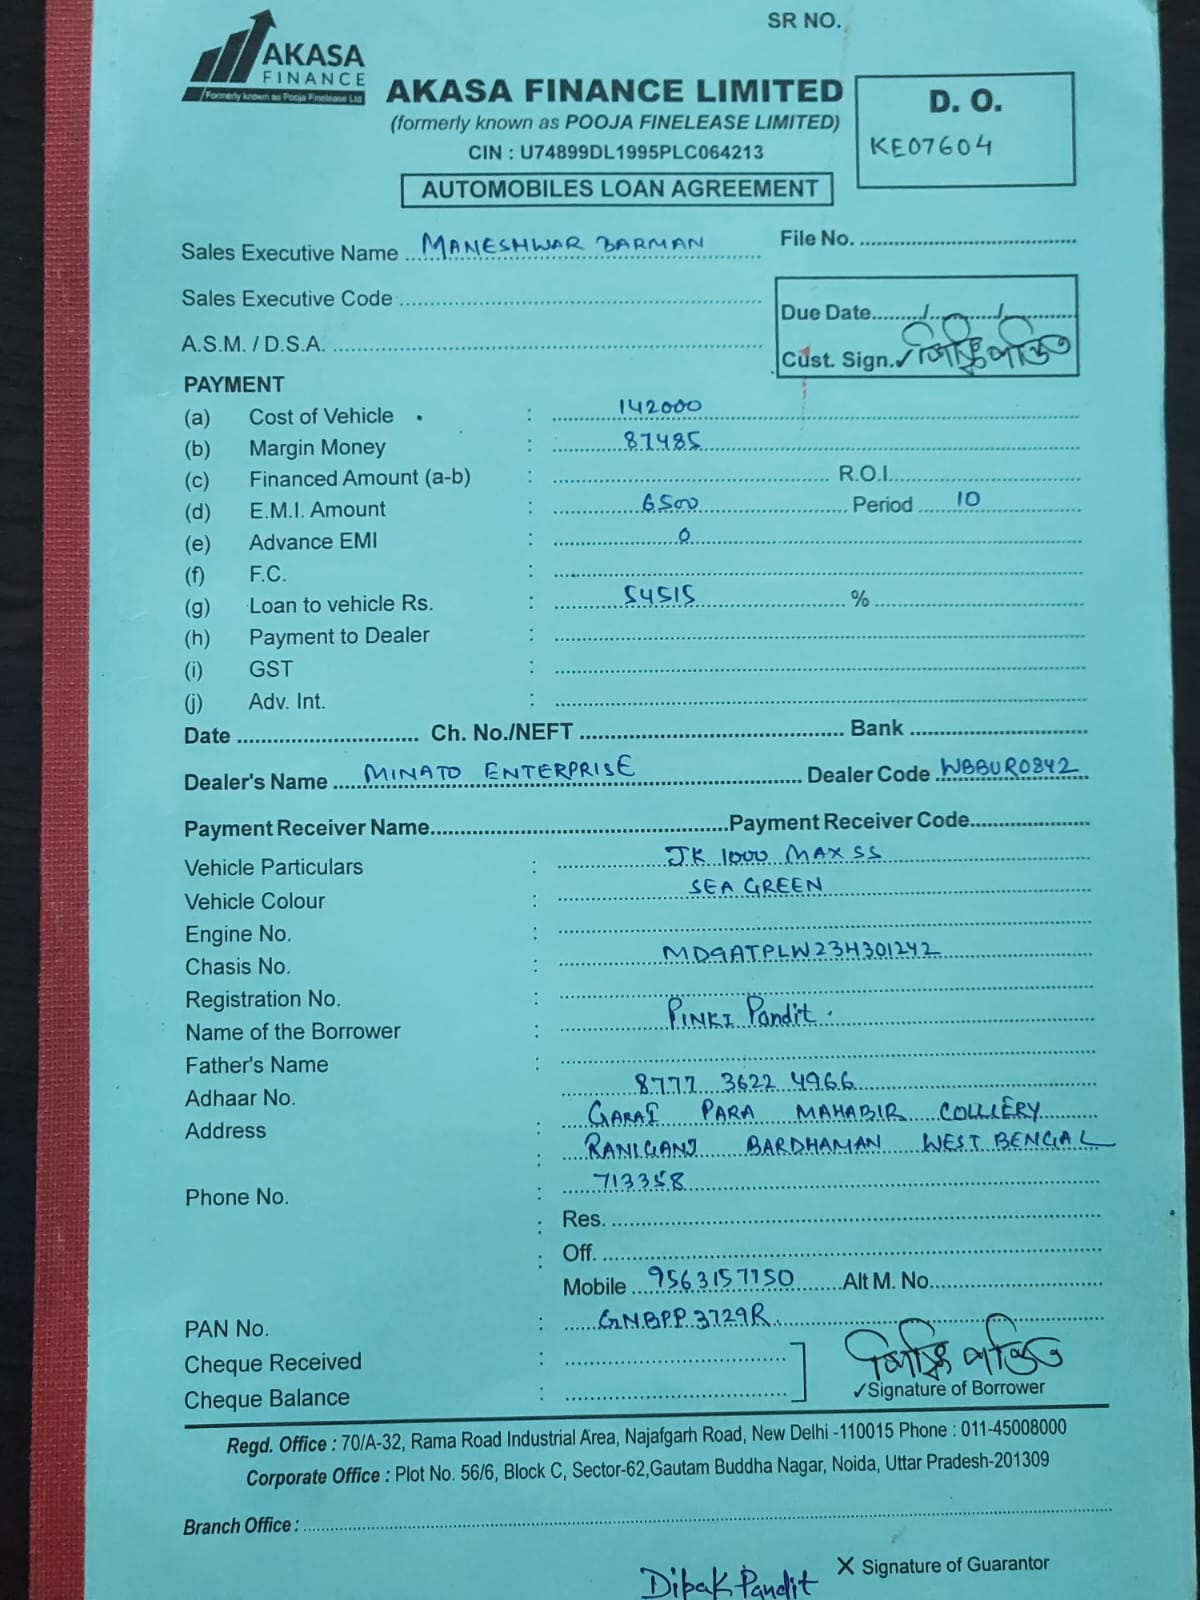 SR NO.
AKASA
FINANCE
Formerly known as Pooja Finelease Ltd
AKASA FINANCE LIMITED
(formerly known as POOJA FINELEASE LIMITED)
CIN : U74899DL1995PLC064213
AUTOMOBILES LOAN AGREEMENT
D. O.
KE07604
Sales Executive Name MANESHWAR BARMAN
File No.
Sales Executive Code
Due Date / /
A.S.M. / D.S.A.
Cust. Sign. ✓
PAYMENT
(a) Cost of Vehicle : 142000
(b) Margin Money : 87485
(c) Financed Amount (a-b) : R.O.I.
(d) E.M.I. Amount : 6500 Period 10
(e) Advance EMI : 0
(f) F.C. :
(g) Loan to vehicle Rs. : 54515 %
(h) Payment to Dealer :
(i) GST :
(j) Adv. Int. :
Date Ch. No./NEFT Bank
Dealer's Name MINATO ENTERPRISE Dealer Code WBBUR0842
Payment Receiver Name Payment Receiver Code
Vehicle Particulars : JK 1000 MAX SS
Vehicle Colour : SEA GREEN
Engine No. :
Chasis No. : MD9ATPLW23H301242
Registration No. :
Name of the Borrower : PINKI Pandit.
Father's Name :
Adhaar No. 8777 3622 4966
Address : GARAI PARA MAHABIR COLLERY
: RANIGANJ BARDHAMAN WEST BENGAL
Phone No. : 713358
: Res.
: Off.
Mobile 9563157750 Alt M. No.
PAN No. : GNBPP3729R
Cheque Received :
Cheque Balance :
✓Signature of Borrower
Regd. Office : 70/A-32, Rama Road Industrial Area, Najafgarh Road, New Delhi -110015 Phone : 011-45008000
Corporate Office : Plot No. 56/6, Block C, Sector-62,Gautam Buddha Nagar, Noida, Uttar Pradesh-201309
Branch Office :
X Signature of Guarantor
Dipak Pandit